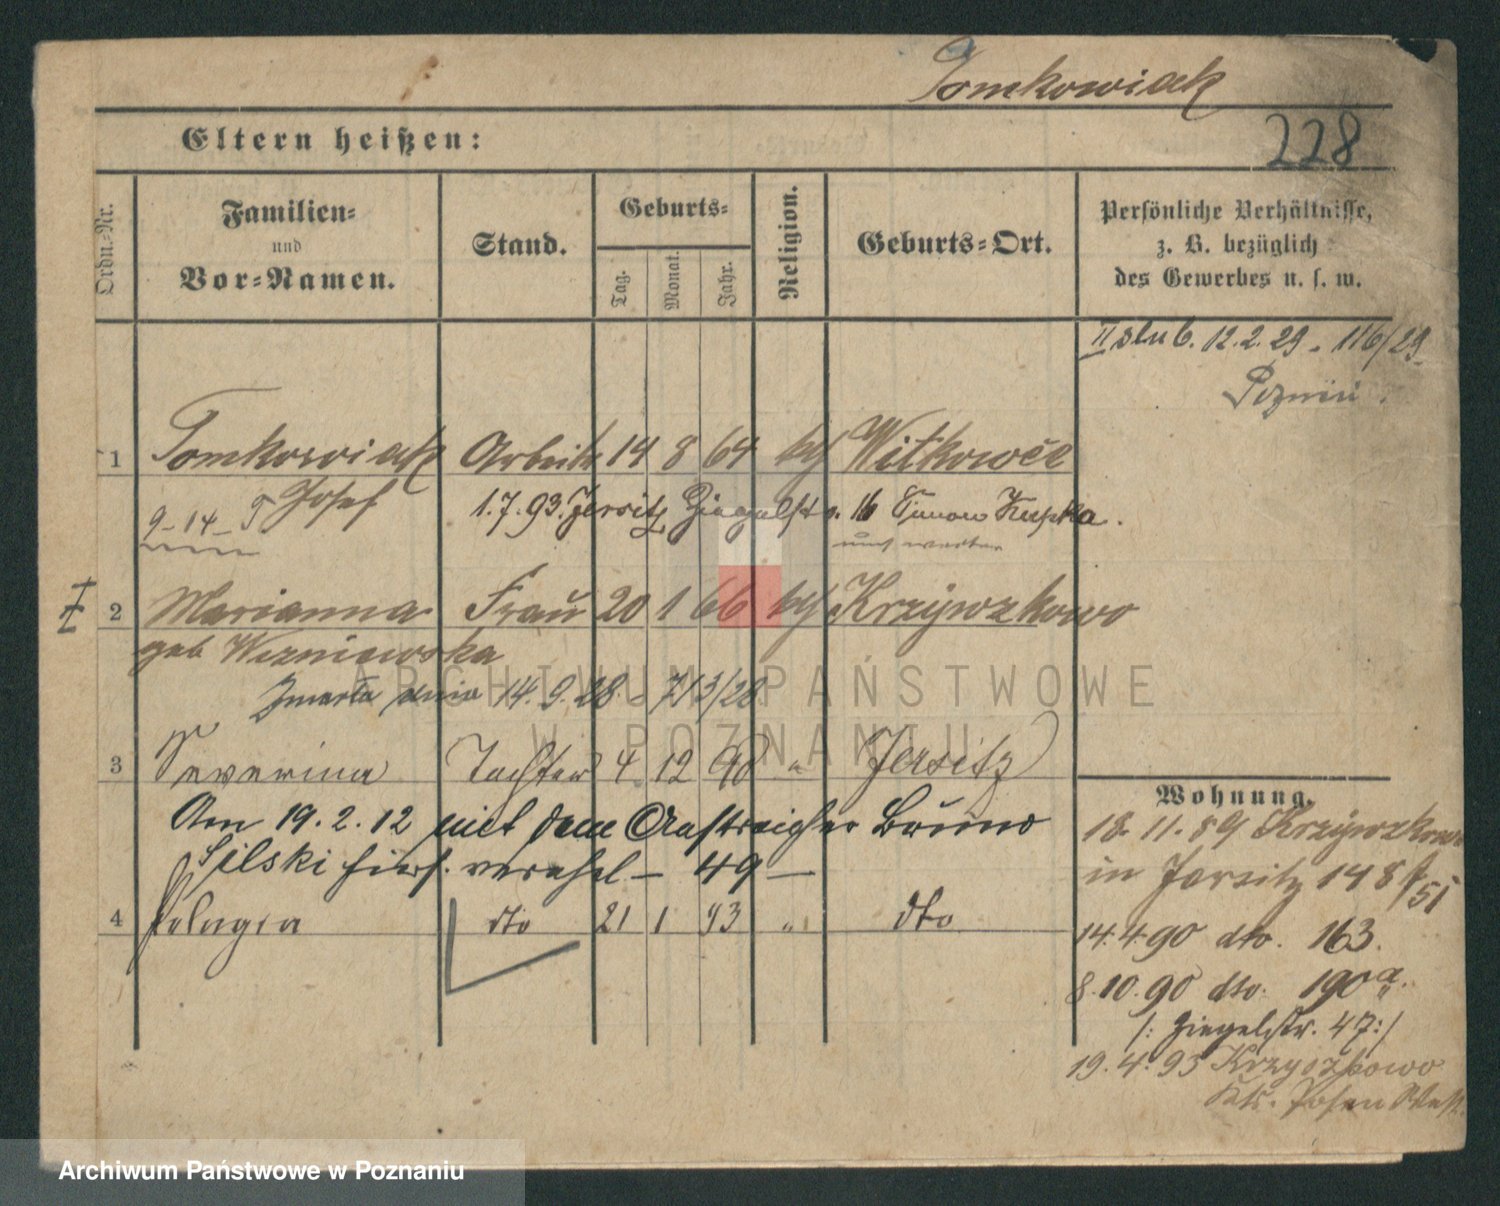 Tomkowiak
228
Eltern heißen:
Ordn.-Nr.
Familien-
und
Vor-Namen.
Stand.
Geburts-
Tag.
Monat.
Jahr.
Religion.
Geburts-Ort.
Persönliche Verhältnisse,
z. B. bezüglich
des Gewerbes u. s. w.
II slub. 12.2.29 - 116/29
1 Tomkowiak Arbeiter 14 8 64 Witkowce
9-14- Josef 1.7.93. Jersitz Ziegelstr. 16
2 Marianna Frau 20 1 66 Krzywzkowo
geb Wizniewska
Zmarła dnia 14.9.28. - 713/28
3 Severina Tochter 4 12 90 " Jersitz
Am 19.2.12 mit dem Bruno
Silski hiers. verehel - 49 -
4 Pelagia dto 21 1 93 " dto
Wohnung.
18.11.89 Krzywzkowo
in Jersitz 148
14.4.90 dto. 163.
8.10.90 dto. 190a.
/: Ziegelstr. 47:/
19.4.93 Krzyszkowo
Krs. Posen West
ARCHIWUM PAŃSTWOWE
W POZNANIU
Archiwum Państwowe w Poznaniu